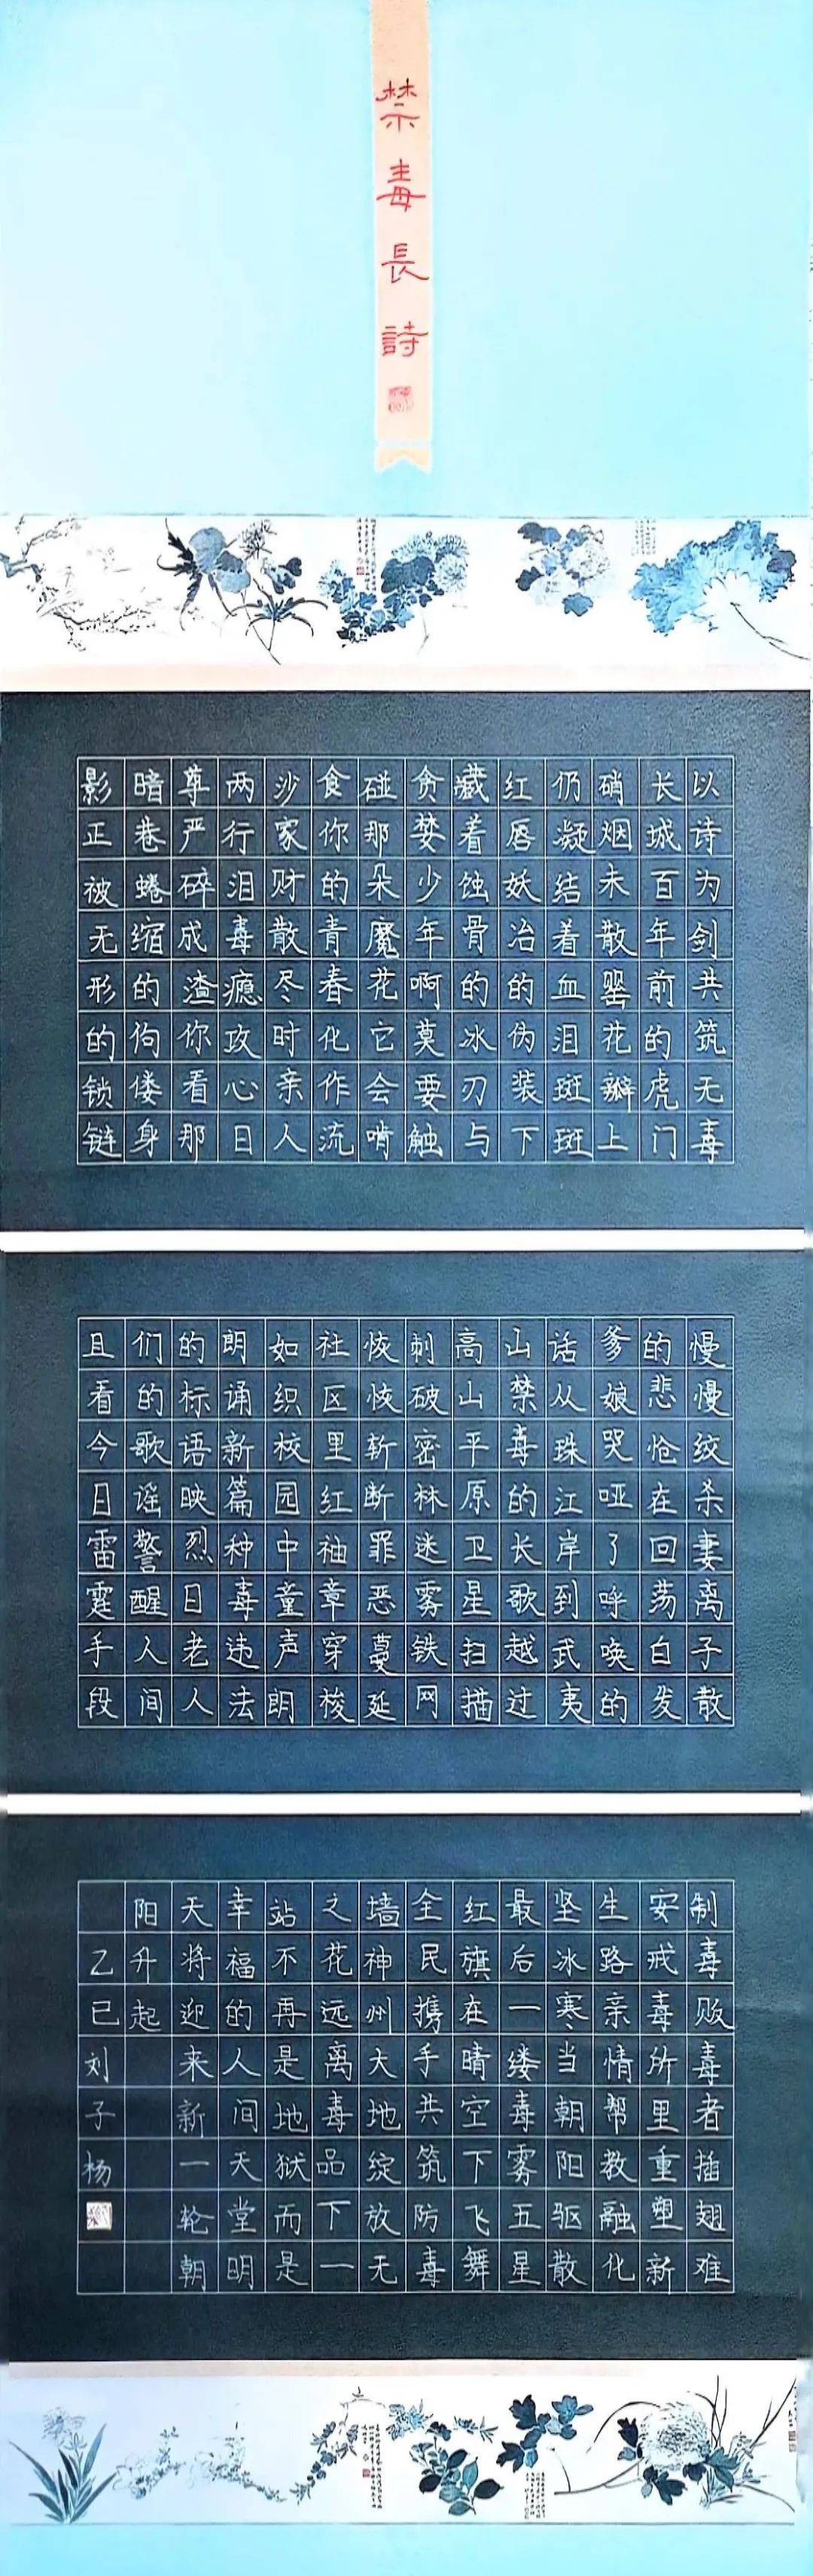 禁毒長詩
以诗为剑共筑无毒
长城百年前的虎门
硝烟未散罂花瓣上
仍凝结着血泪斑斑
红唇妖冶的伪装下
藏着蚀骨的冰刃与
贪婪少年啊莫要触
碰那朵魔花它会啃
食你的青春化作流
沙家财散尽时亲人
两行泪毒瘾攻心日
尊严碎成渣你看那
暗巷蜷缩的佝偻身
影正被无形的锁链
慢慢绞杀妻离子散
的悲怆在回荡白发
爹娘哭哑了呼唤的
话从珠江岸到武夷
山禁毒的长歌越过
高山平原卫星扫描
刺破密林迷雾铁网
恢恢斩断罪恶蔓延
社区里红袖章穿梭
如织校园中童声朗
朗诵新篇种毒违法
的标语映烈日老人
们的歌谣警醒人间
且看今日雷霆手段
制毒贩毒者插翅难
安戒毒所里重塑新
生路亲情帮教融化
坚冰寒当朝阳驱散
最后一缕毒雾五星
红旗在晴空下飞舞
全民携手共筑防毒
墙神州大地绽放无
之花远离毒品下一
站不再是地狱而是
幸福的人间天堂明
天将迎来新一轮朝
阳升起
乙巳刘子杨